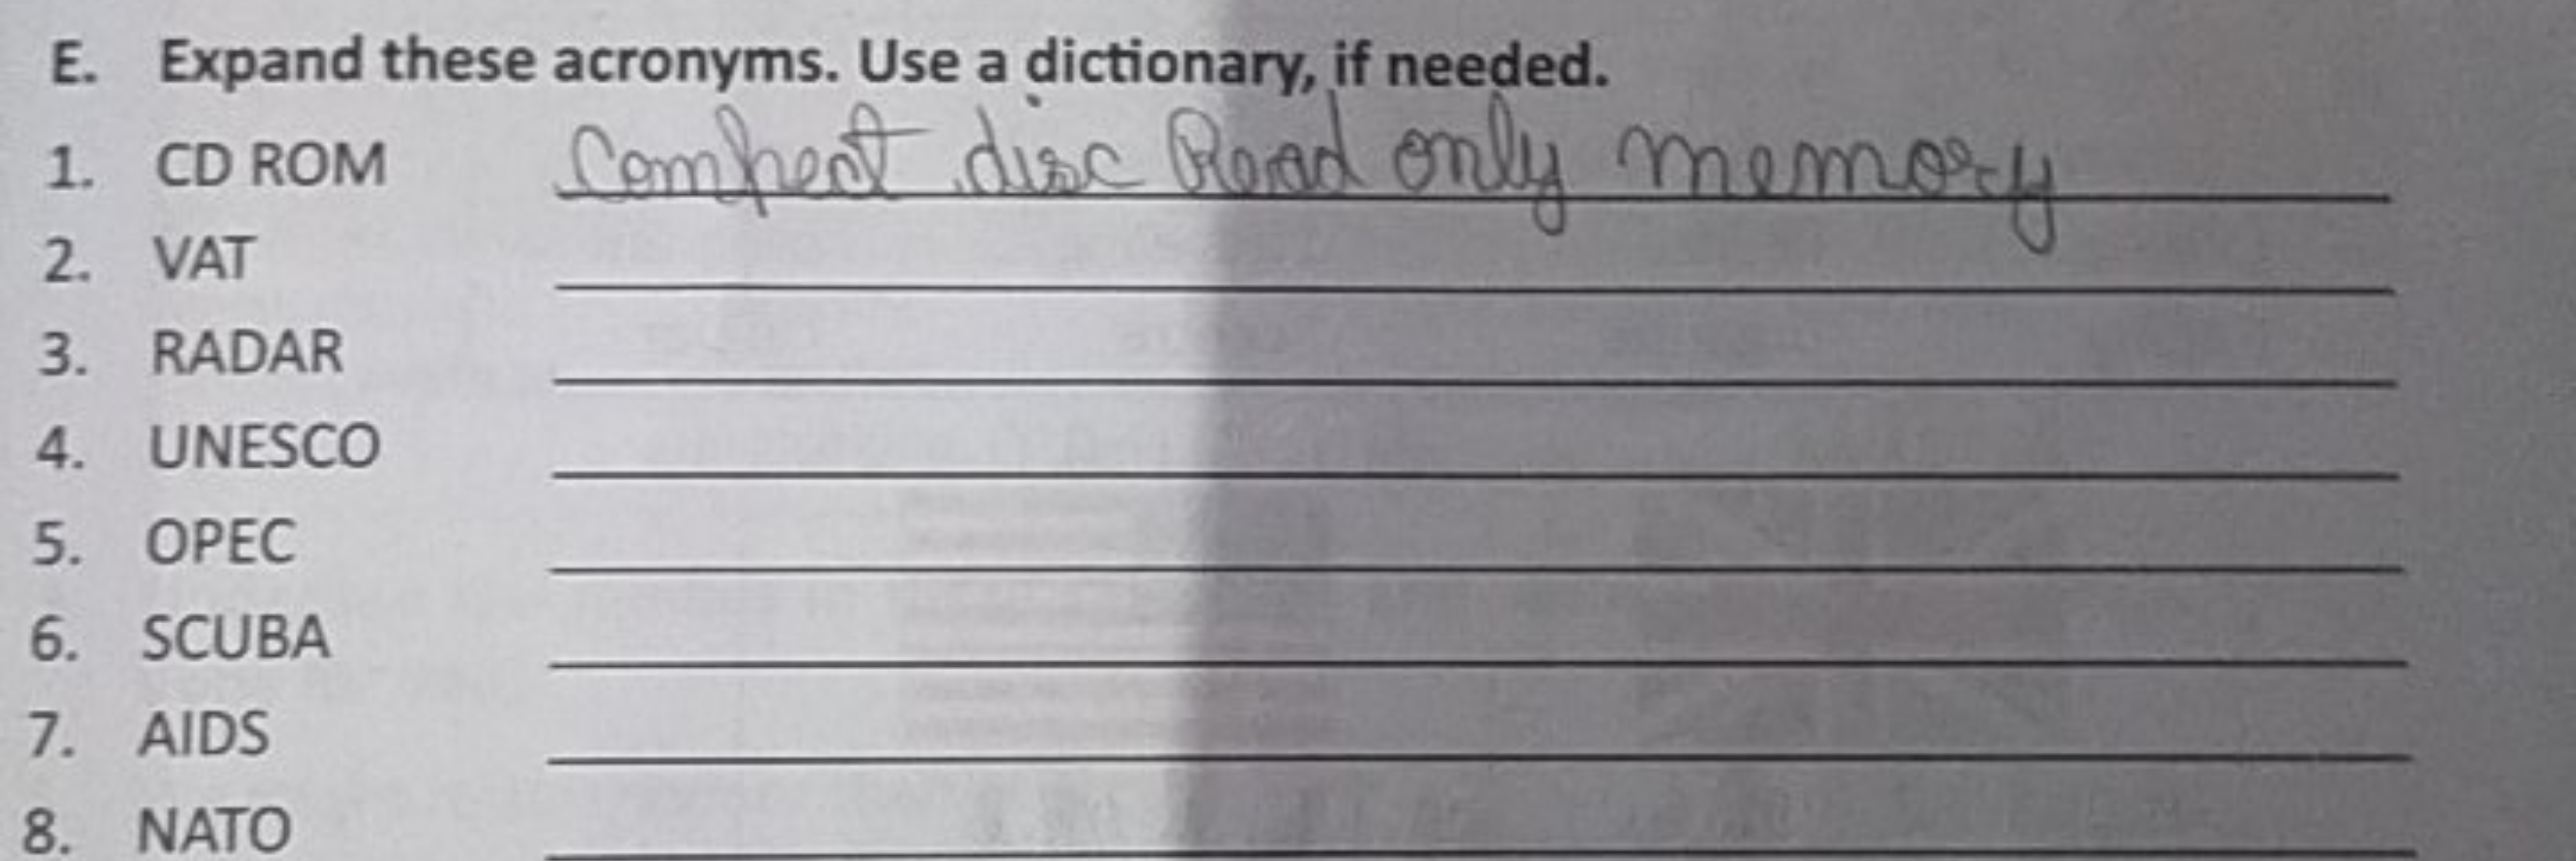 E. Expand these acronyms. Use a dictionary, if needed.
1. CD ROM Compeat disc Read only memory
2. VAT
3. RADAR
4. UNESCO
5. OPEC
6. SCUBA
7. AIDS
8. NATO